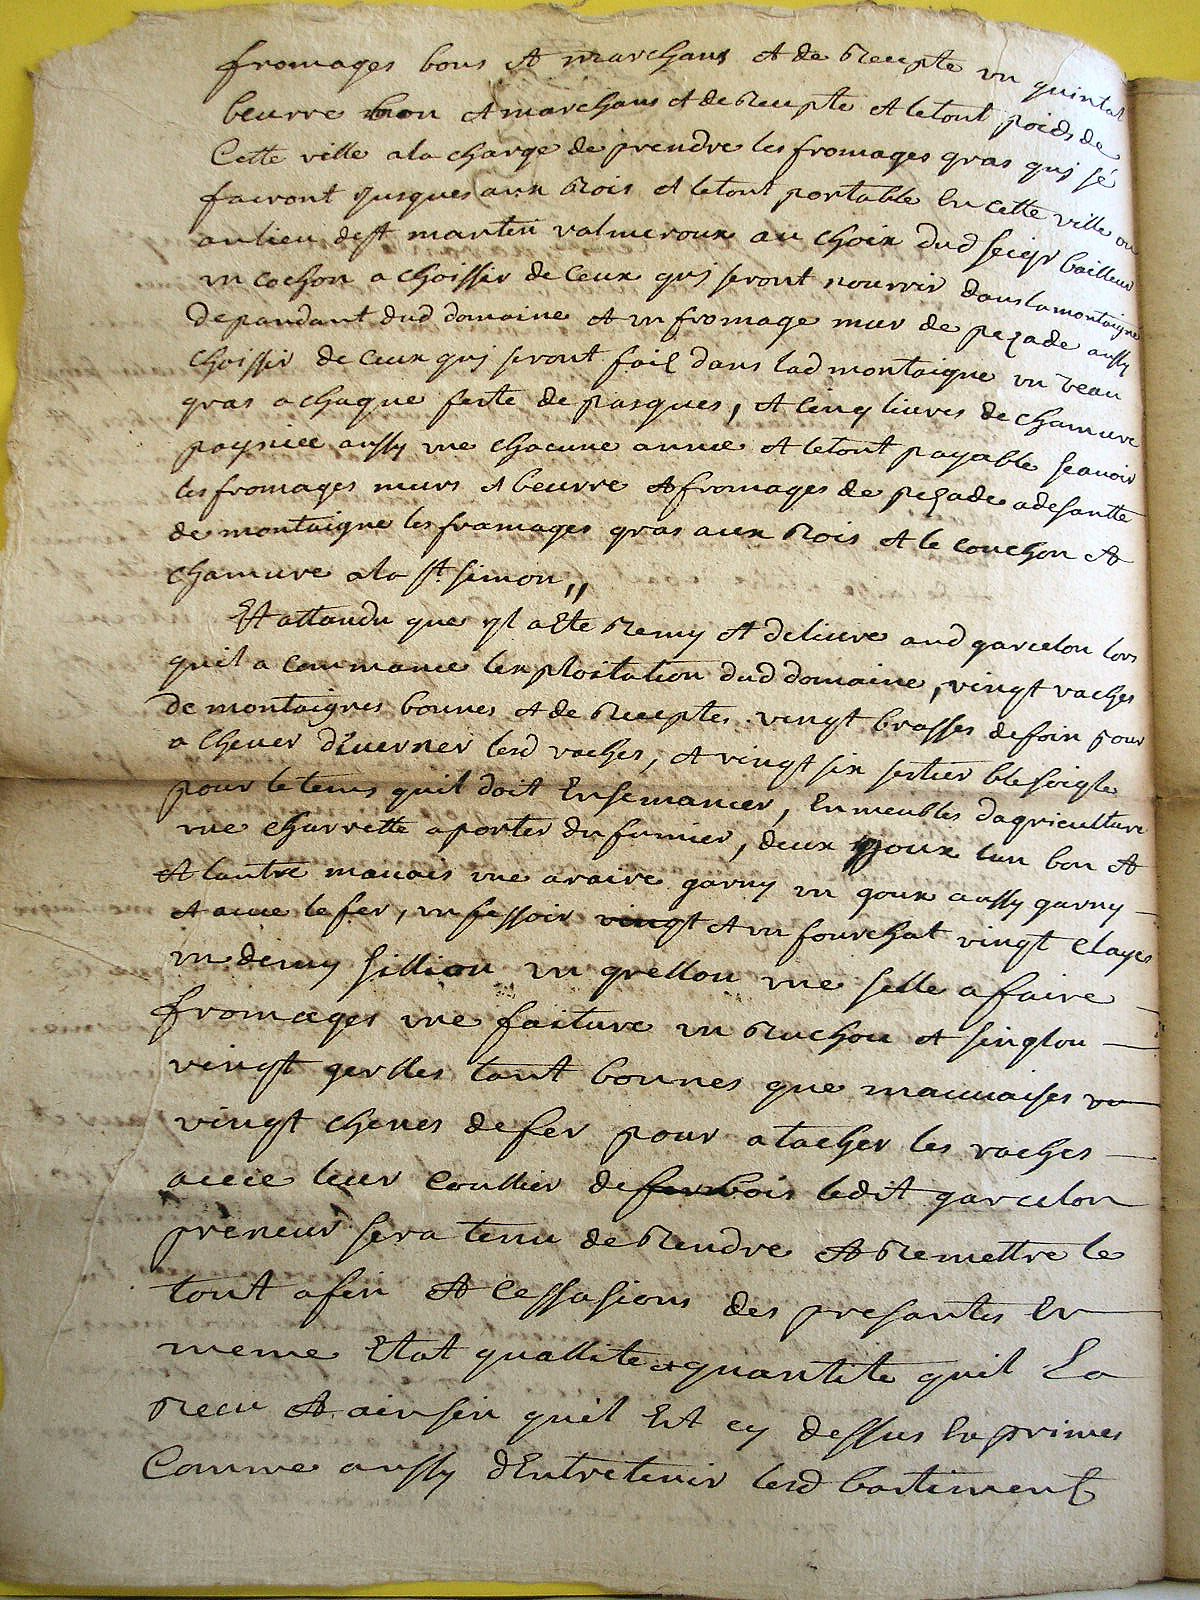 fromages bons et marchans et de recepte un quintal
beurre bon et marchans et de recepte et letout poids de
Cette ville ala charge de prendre les fromages gras quj se
fairont jusques aux Rois et letout portable En cette ville ou
aulieu de st martin valmeroux au choix dud seigr bailleur
un cochon a choissir de Ceux quj seront nourrir dans la montaigne
depandant dud domaine et un fromage mur de pezade aussy
choissir de ceux quj seront fait dans lad montaigne un veau
gras a chaque feste de pasques, et cinq livres de chamvre
paysniee aussy une chacune annee et letout payable scavoir
les fromages murs et beurre et fromages de pezade adesante
de montaigne les framages gras aux Rois et le couchon et
chamvre ala st simon „
Et attandu que yl a Ete Remy et delivre aud garcelon lors
quil a commance lexploitation dud domaine, vingt vaches
de montaignes bonnes et de receptes vingt brasses defoin pour
achever diverner lesd vaches, et vingt six sestier ble seigle
pour le tems quil doit Ensemancer, En meubles dagriculture
une charrette aporter du fumier, deux joux lun bon et
et lautre mauvais une araire garny un joux aussy garny
et avec le fer, un fessoir vingt et un fourchat vingt Clayes
un demy sillion un grellon une selle a faire
fromages une faiture un Ruchou et singlou
vingt gerlles tant bonnes que mauvaises un
vingt chenes defer pour atacher les vaches
avec leur Coullier de fer bois ledit garcelon
preneur sera tenu de Rendre et Remettre le
tout afin et Cessasions des presantes En
meme Etat quallite et quantite quil La
Recu et ainsin quil Est cy dessus Exprimes
Comme aussy dEntretenir lesd bastiment